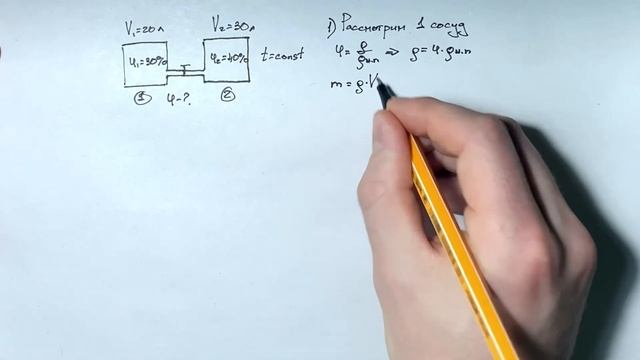 V₁=20л V₂=30л
φ₁=30% φ₂=40% t=const
① φ-? ②
1) Рассмотрим 1 сосуд
φ = ρ/ρн.п ⇒ ρ = φ·ρн.п
m = ρ·V